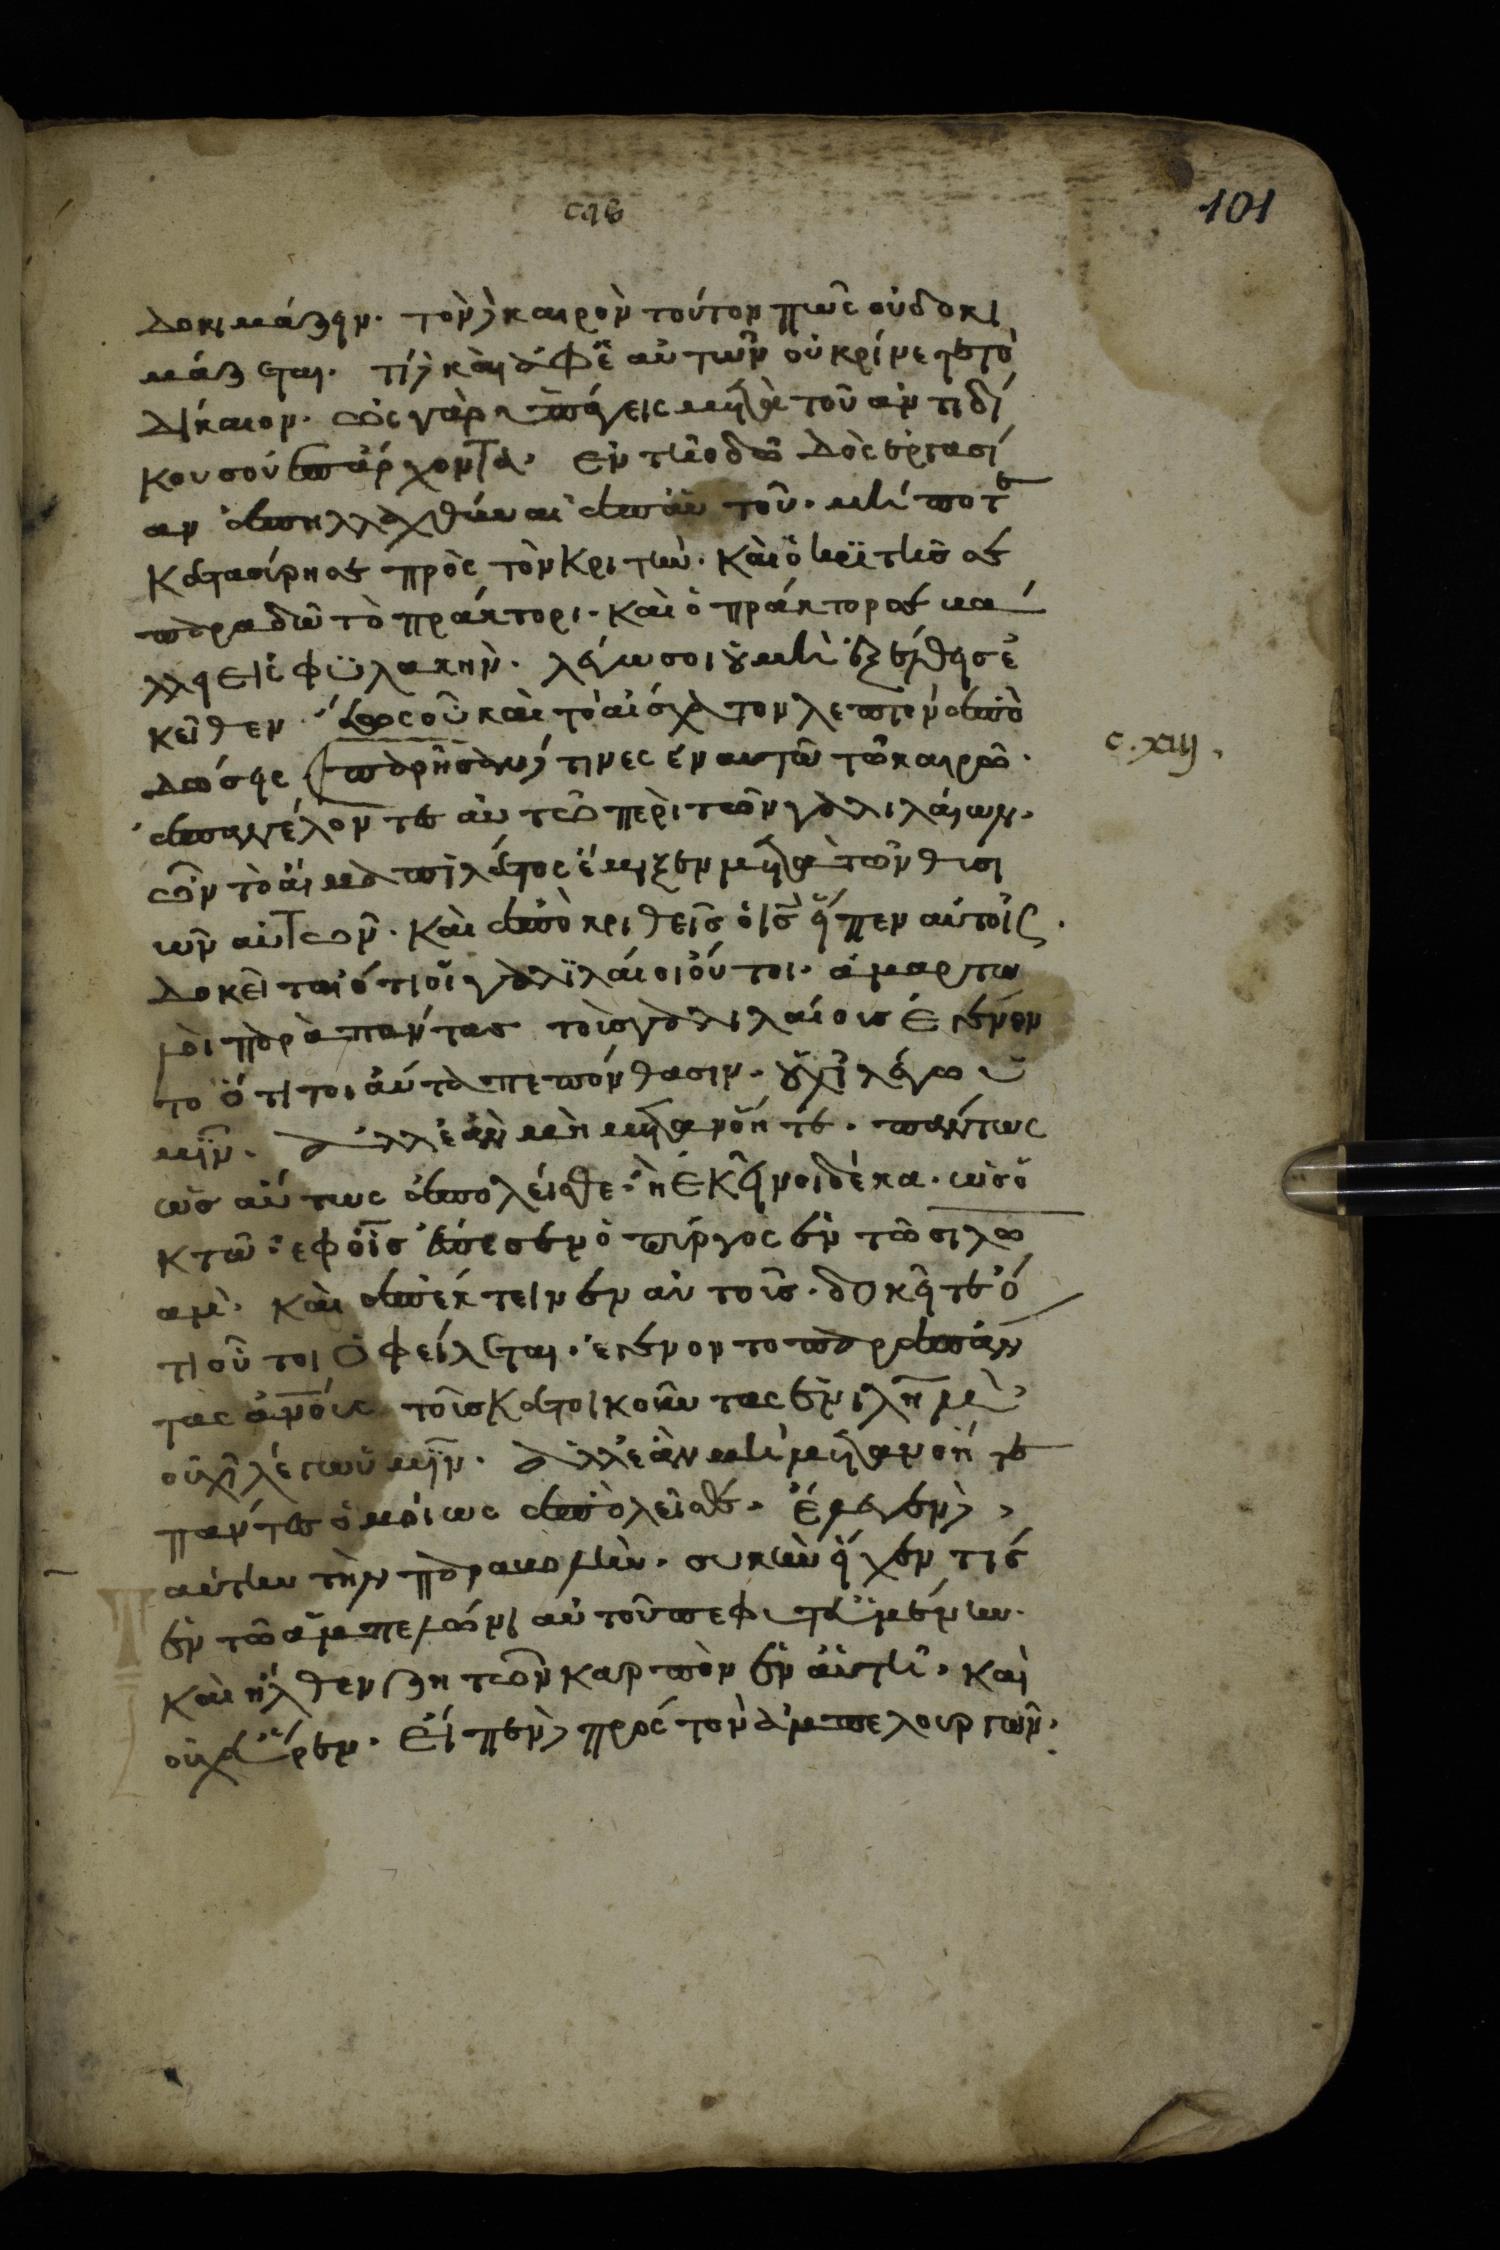 101
δοκιμάζειν. τὸν δὲ καιρὸν τούτον πῶς οὐ δοκι
μάζεται. τί δὲ καὶ ἀφ ἐαὐτῶν οὐ κρίνετε τὸ
δίκαιον. ὡς γὰρ ὑπάγεις μετὰ τοῦ ἀντιδί
κου σού ἐπ ἄρχοντα. ἐν τῆ οδῶ δὸς ἐργασί
αν ἀπηλλάχθαι ἀπ αὐτοῦ. μή ποτε
κατασύρη σε πρὸς τὸν κριτὴν. καὶ ὁ κριτὴς σε
παραδῶ τὸ πράκτορι. καὶ ὁ πράκτορ σε βα
λλη εἰς φϋλακὴν. λέγω σοι οὐ μὴ ἐξέλθης ἐ
κεῖθεν. ἕως οὗ καὶ τὸ αἴσχατον λεπτὸν ἀπὸ
δώσης παρῆσαν δέ τινες ἐν αυτῶ τῶ καιρῶ.
c. xiij.
ἀπαγγέλοντες αὐτῶ περὶ τῶν γαλιλαίων.
ὧν τὸ αἷμα πιλάτος ἔμιξεν μετὰ τῶν θυσι
ῶν αὐτῶν. καὶ ἀποκριθεὶς ὁ ις εἶπεν αὐτοῖς.
δοκεῖται ὅτι οἱ γαλϊλαίοι οὗτοι. ἁμαρτω
λοὶ παρὰ παντας τοὶς γαλιλαίοις ἐγένον
το ὅτι τοιαύτα πεπόνθασιν. οὐχὶ λέγω ὑ
μῖν. ἀλλ ἐὰν μὴ μετανοῆτε. πάντως
ὡσ αύτως ἀπολεῖσθε. ἢ ἐκεῖνοι δέκα. ὡσ ὀ
κτῶ. ἐφ οἷς ἔπεσεν ὁ πύργος ἐν τῶ σιλω
αμ. καὶ ἀπέκτεινεν αὐτοῖς. δοκῆτε ὅ
τι οὗτοι ὀφείλεται. ἐγένοντο παρὰ πάν
τας ανους τοῖς κατοικοῦντας ἐν ιλημ
οὐχὶ λέγω ὑμῖν. ἀλλ ἐὰν μὴ μετανοῆτε
πάντες ὁμοίως ἀπολεῖσθε. ἔλεγεν δὲ
αύτην τὴν παραβολὴν. συκὴν εἶχεν τίς
ἐν τῶ ἀμπελώνι αὐτοῦ πεφυτευμένην.
καὶ ἦλθεν ζητῶν καρπὸν ἐν αὐτῆ. καὶ
οὐχ εὗρεν. εἶπεν δὲ πρὸς τὸν ἀμπελουργῶν.